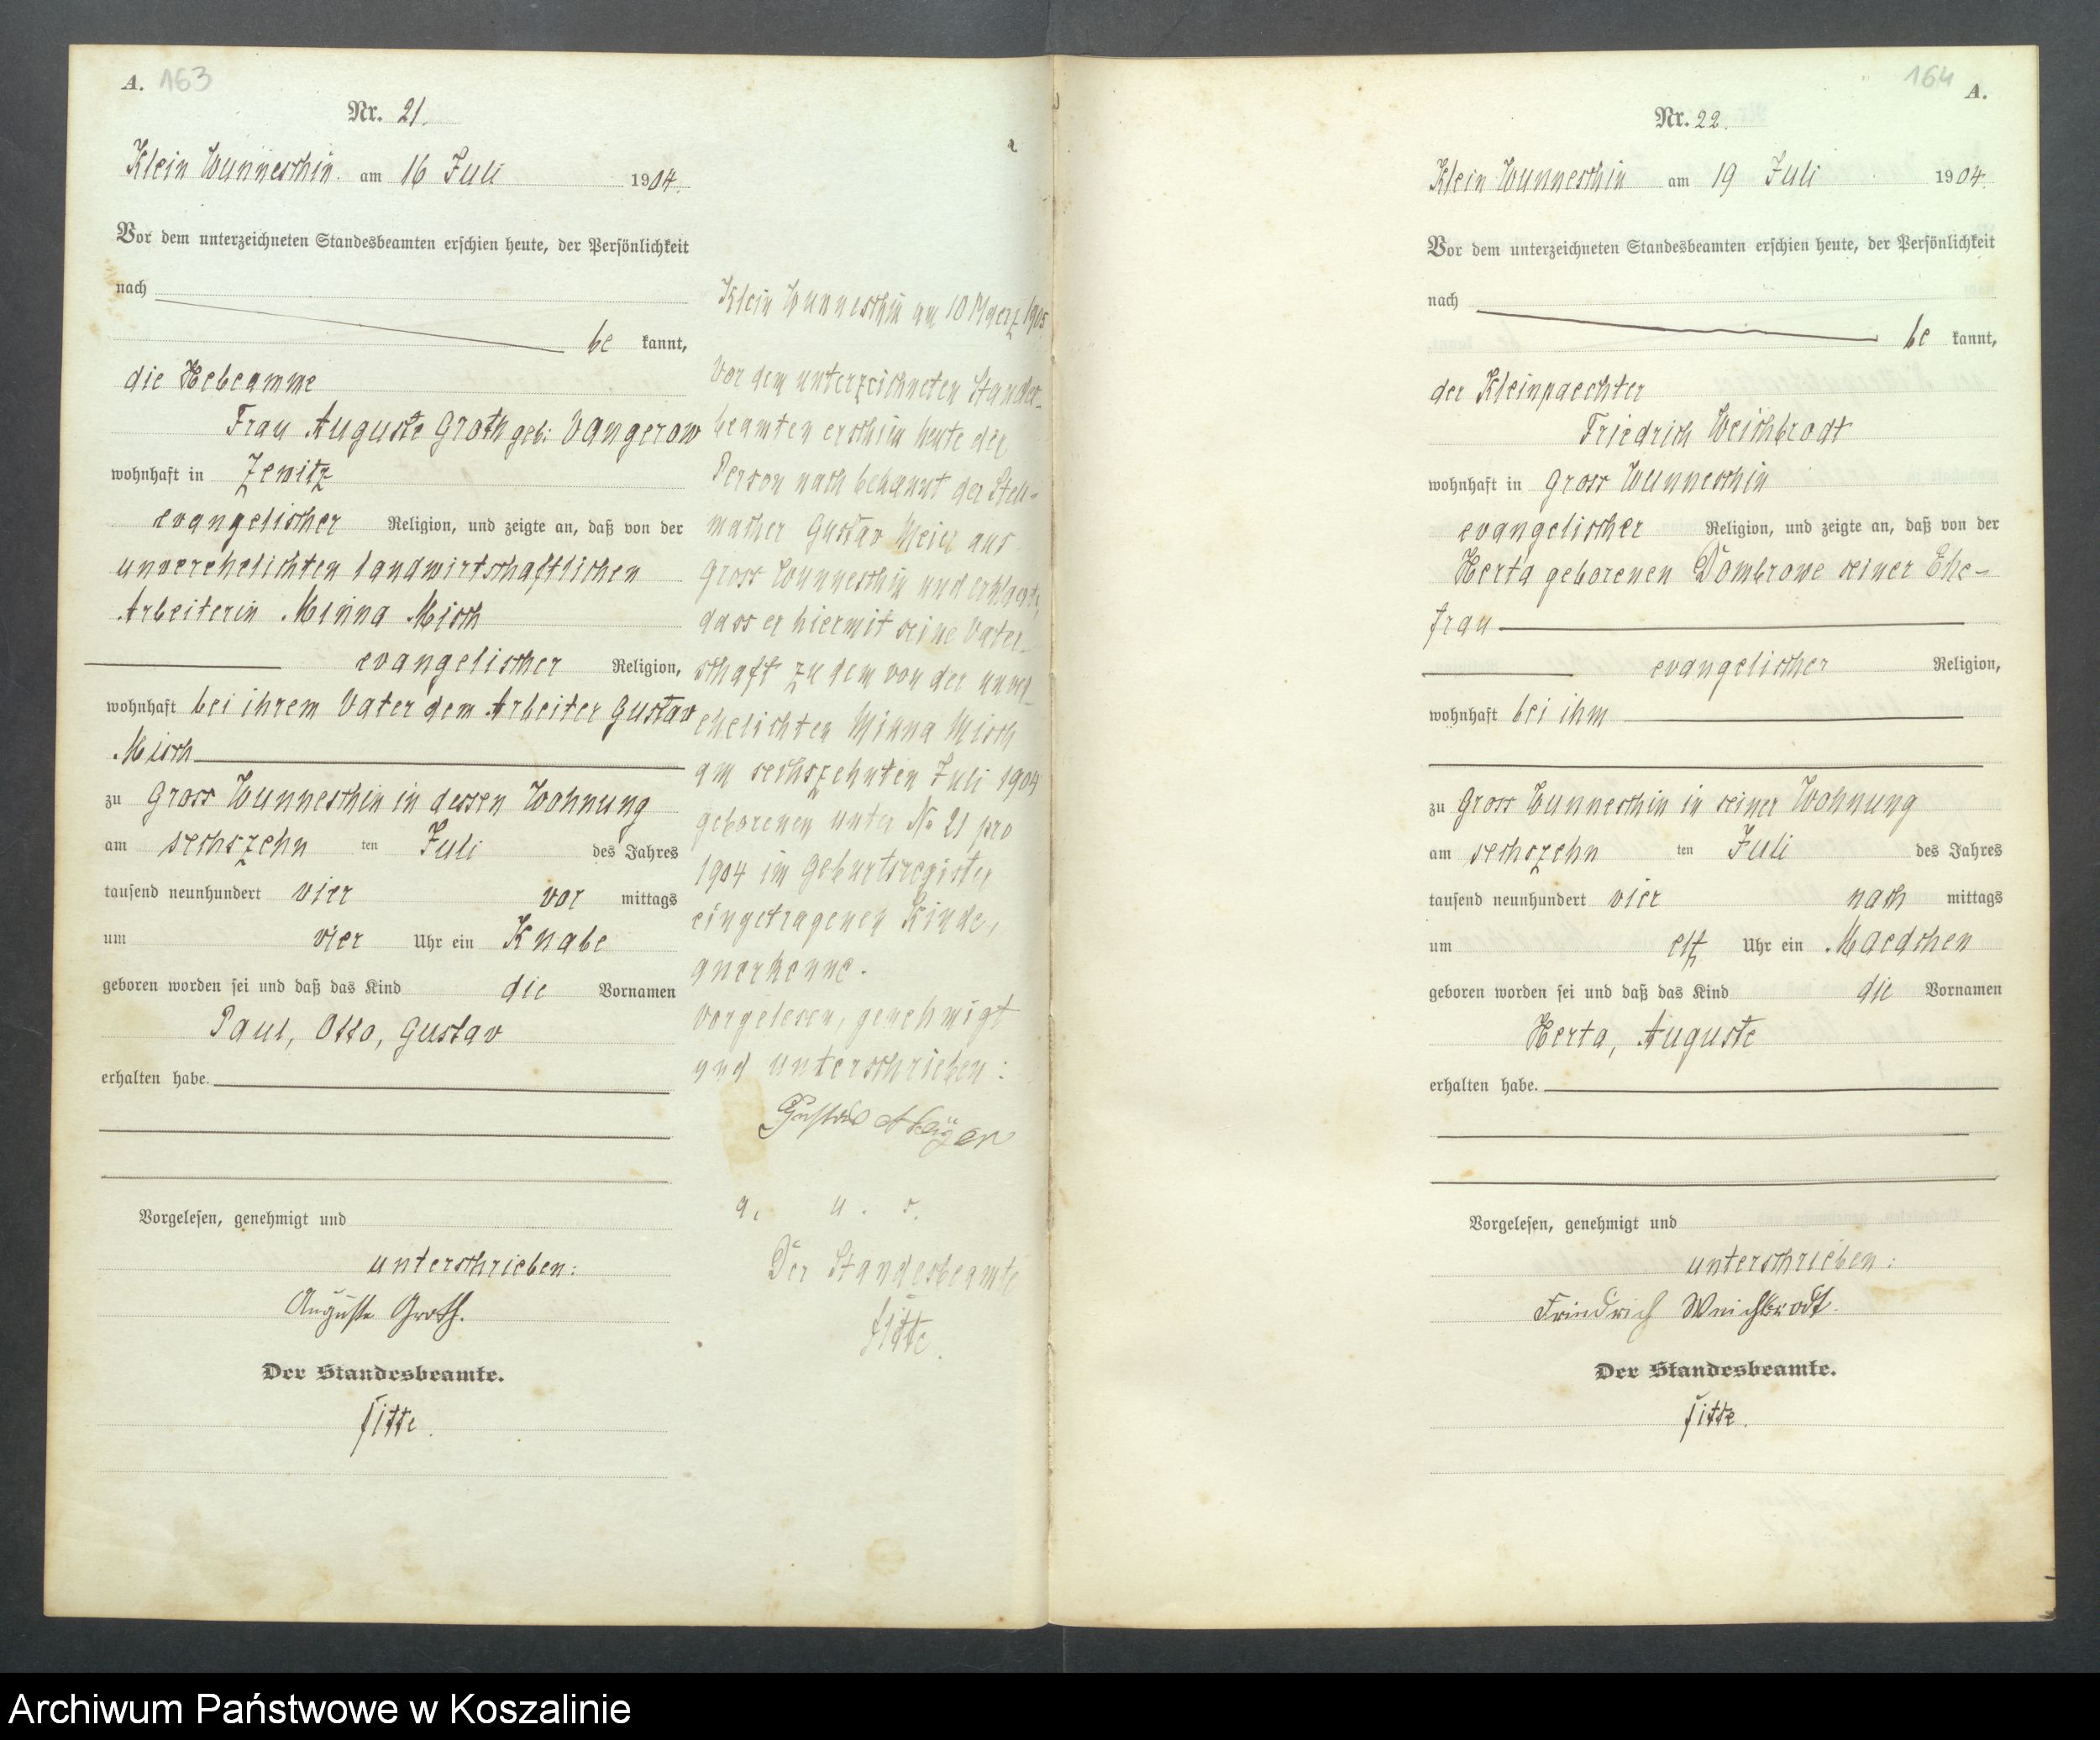 A. 163
Nr. 21.
Klein Wunneschin. am 16 Juli 1904.
Vor dem unterzeichneten Standesbeamten erschien heute, der Persönlichkeit
nach
be kannt,
die Hebeamme
Frau Auguste Groth geb: Vangerow
wohnhaft in Zewitz
evangelischer Religion, und zeigte an, daß von der
unverehelichten landwirtschaftlichen
Arbeiterin Minna Misch
evangelischer Religion,
wohnhaft bei ihrem Vater dem Arbeiter Gustav
Misch
zu Gross Wunneschin in dessen Wohnung
am sechszehn ten Juli des Jahres
tausend neunhundert vier vor mittags
um vier Uhr ein Knabe
geboren worden sei und daß das Kind die Vornamen
Paul, Otto, Gustav
erhalten habe.
Vorgelesen, genehmigt und
unterschrieben:
Auguste Groth.
Der Standesbeamte.
Titte.
Klein Wunneschin am 10 Maerz 1905
Vor dem unterzeichneten Standes-
beamten erschien heute der
Person nach bekannt der Stell-
macher Gustav Meier aus
Gross Wunneschin und erklaerte,
dass er hiermit seine Vater-
schaft zu dem von der unver-
ehelichten Minna Misch
am sechszehnten Juli 1904
geborenen unter No 21 pro
1904 im Geburtsregister
eingetragenen Kinde,
anerkenne.
Vorgelesen, genehmigt
und unterschrieben:
Gustav
a. u. s.
Der Standesbeamte
Titte.
164 A.
Nr. 22.
Klein Wunneschin am 19 Juli 1904.
Vor dem unterzeichneten Standesbeamten erschien heute, der Persönlichkeit
nach
be kannt,
der Kleinpaechter
Friedrich Weichbrodt
wohnhaft in Gross Wunneschin
evangelischer Religion, und zeigte an, daß von der
Herta geborenen Dombrowe seiner Ehe-
frau
evangelischer Religion,
wohnhaft bei ihm
zu Gross Wunneschin in seiner Wohnung
am sechszehn ten Juli des Jahres
tausend neunhundert vier nach mittags
um elf Uhr ein Maedchen
geboren worden sei und daß das Kind die Vornamen
Herta, Auguste
erhalten habe.
Vorgelesen, genehmigt und
unterschrieben:
Friedrich Weichbrodt.
Der Standesbeamte.
Titte.
Archiwum Państwowe w Koszalinie